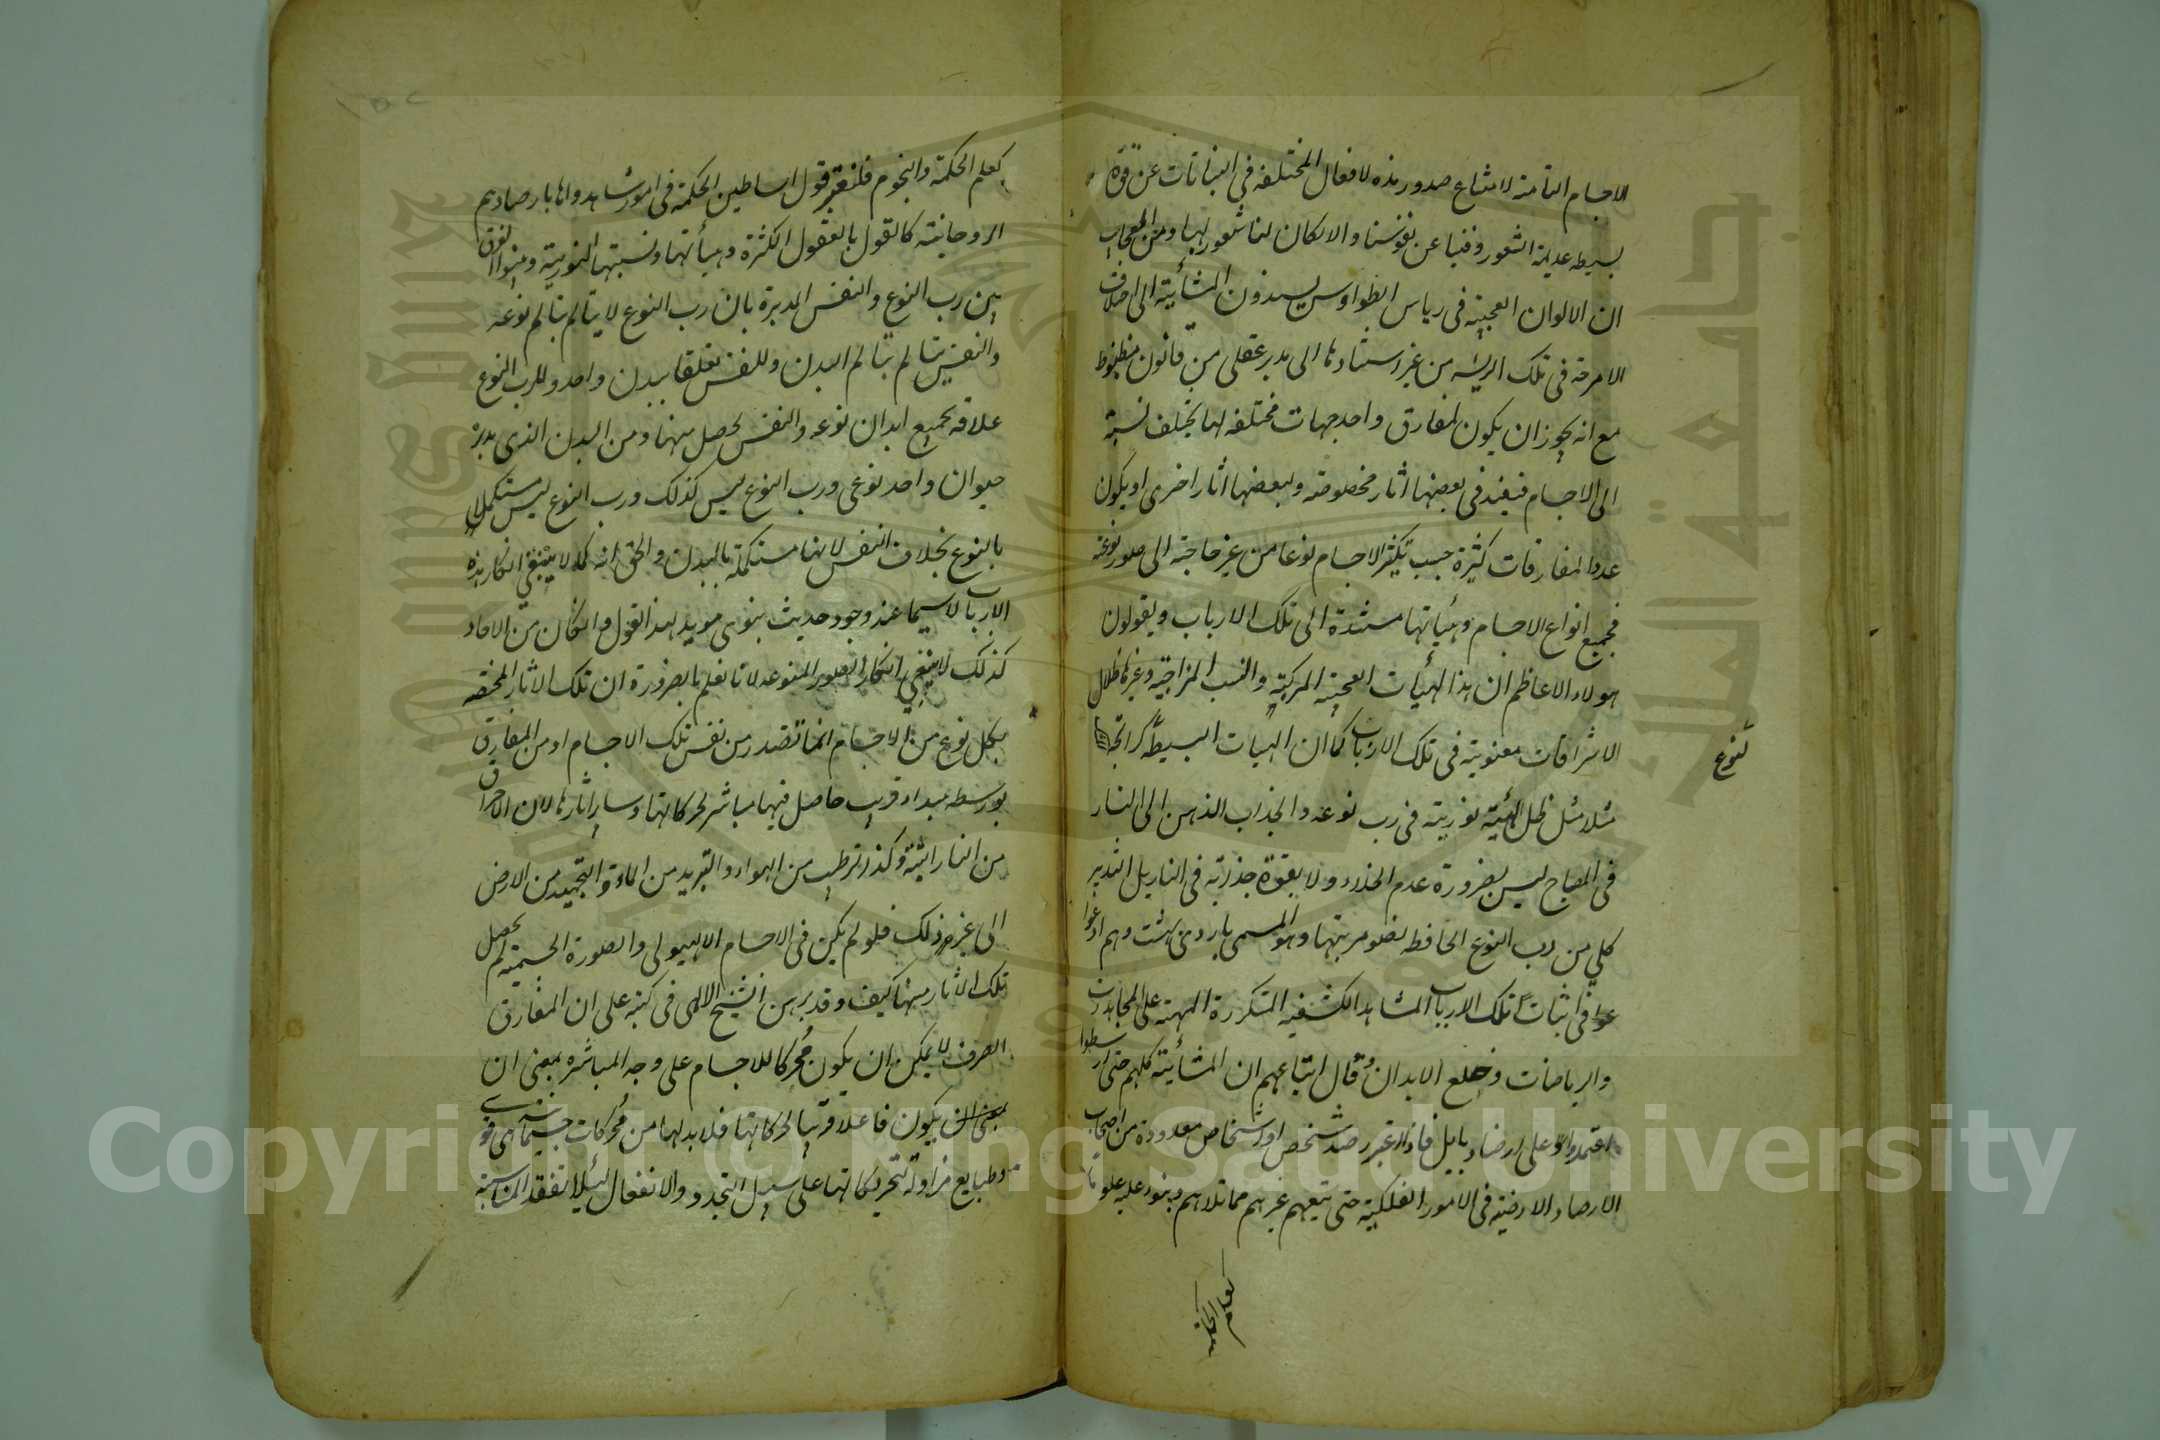 الاجسام النامية لامتناع صدور هذه الافعال المختلفة في النباتات عن قوة
بسيطه عديمة الشعور وفينا عن نفوسنا والا لكان لنا شعور بها ومن العجايب
ان الالوان العجيبة فى رياس الطواويس يسندون المشأيية الى اختلاف
الامزجة فى تلك الريشه من غير استنادها الى مدبر عقلى من قانون مضبوط
مع انه يجوز ان يكون لمفارق واحد جهات مختلفه لها يختلف نسبة
الى الاجسام فيفيد فى بعضها اثار مخصوصه ولبعضها اثار اخرى او يكون
عدد المفارقات كثيرة حسب تكثر الاجسام نوعا من غير حاجة الى صور نوعية
فجميع انواع الاجسام وهيأتها مستندة الى تلك الارباب ويقولون
هولاء الاعاظم ان هذا الهيأت العجيبة المركبة والنسب المزاجية وغيرها ظلال
الاشراقات معنوية فى تلك الارباب كما ان الهيات البسيطة كرائحة
تنوع
مثلا مثل ظل الهيئة نورية فى رب نوعه وانجذاب الدهن الى النار
فى المصباح ليس بضرورة عدم الخلاء ولا بقوة جذبة فى النار بل التدبير
كلي من رب النوع الحافظ لصنوبريتها وهو المسمى باردى بهشت وهم ادعوا
عوا فى اثبات تلك الارباب المشاهد الكشفية المتكررة المبنية على المجاهدات
والرياضات وخلع الابدان وقال اتباعهم ان المشأيية كلهم حتى ارسطوا
اعتمدوا على ارصاد بابل فاذا اعتبر رصد شخص او اشخاص معدودة من اصحاب
الارصاد الارضية فى الامور الفلكية حتى تبعهم غيرهم مما تلاهم وبنوا عليه علوما
كعلم الحكمة
كعلم الحكمة والنجوم فلنعتبر قول اساطين الحكمة فى امور شاهدوها بارصادهم
الروحانية كالقول بالعقول الكثرة وهيأتها ونسبتها النورية وبينوا الفرق
بين رب النوع والنفس المدبرة بان رب النوع لا يتالم بتالم نوعه
والنفس يتالم بتالم البدن وللنفس تعلقا ببدن واحد وللرب النوع
علاقه بجميع ابدان نوعه والنفس يحصل منها ومن البدن الذى يدبره
حيوان واحد نوعى ورب النوع ليس كذلك ورب النوع ليس مستكملا
بالنوع بخلاف النفس لانها مستكملة بالبدن والحق انه كما لا ينبغى انكار هذه
الارباب لا سيما عند وجود حديث نبوى مويد لهذا القول وان كان من الاحاد
كذلك لا ينبغي انكار الصور المنوعه لانا نعلم بالضرورة ان تلك الاثار المختصه
بكل نوع من الاجسام انما تصدر من نفس تلك الاجسام او من المفارق
بوسطه مبداء قريب حاصل فيها مباشر لحركاتها وساير اثارها لان الاحراق
من النار اثبتة وكذا ترطيب من الهواء والتبريد من الماء والتجميد من الارض
الى غير ذلك فلو لم يكن فى الاجسام الا الهيولى والصورة الجسمية لم يحصل
تلك الاثار منها كيف وقد برهن الشيخ الالهى فى كتبه على ان المفارق
الصرف لا يمكن ان يكون محركا للاجسام على وجه المباشره بمعنى ان
يكون فاعلا قريبا لحركاتها فلا بد لها من محركات جسمانى قوى
وطبايع مزاولة لتحريكاتها على سبيل التجدد والانفعال لئلا تفقد المناسبة
Copyright © King Saud University
جامعة الملك سعود